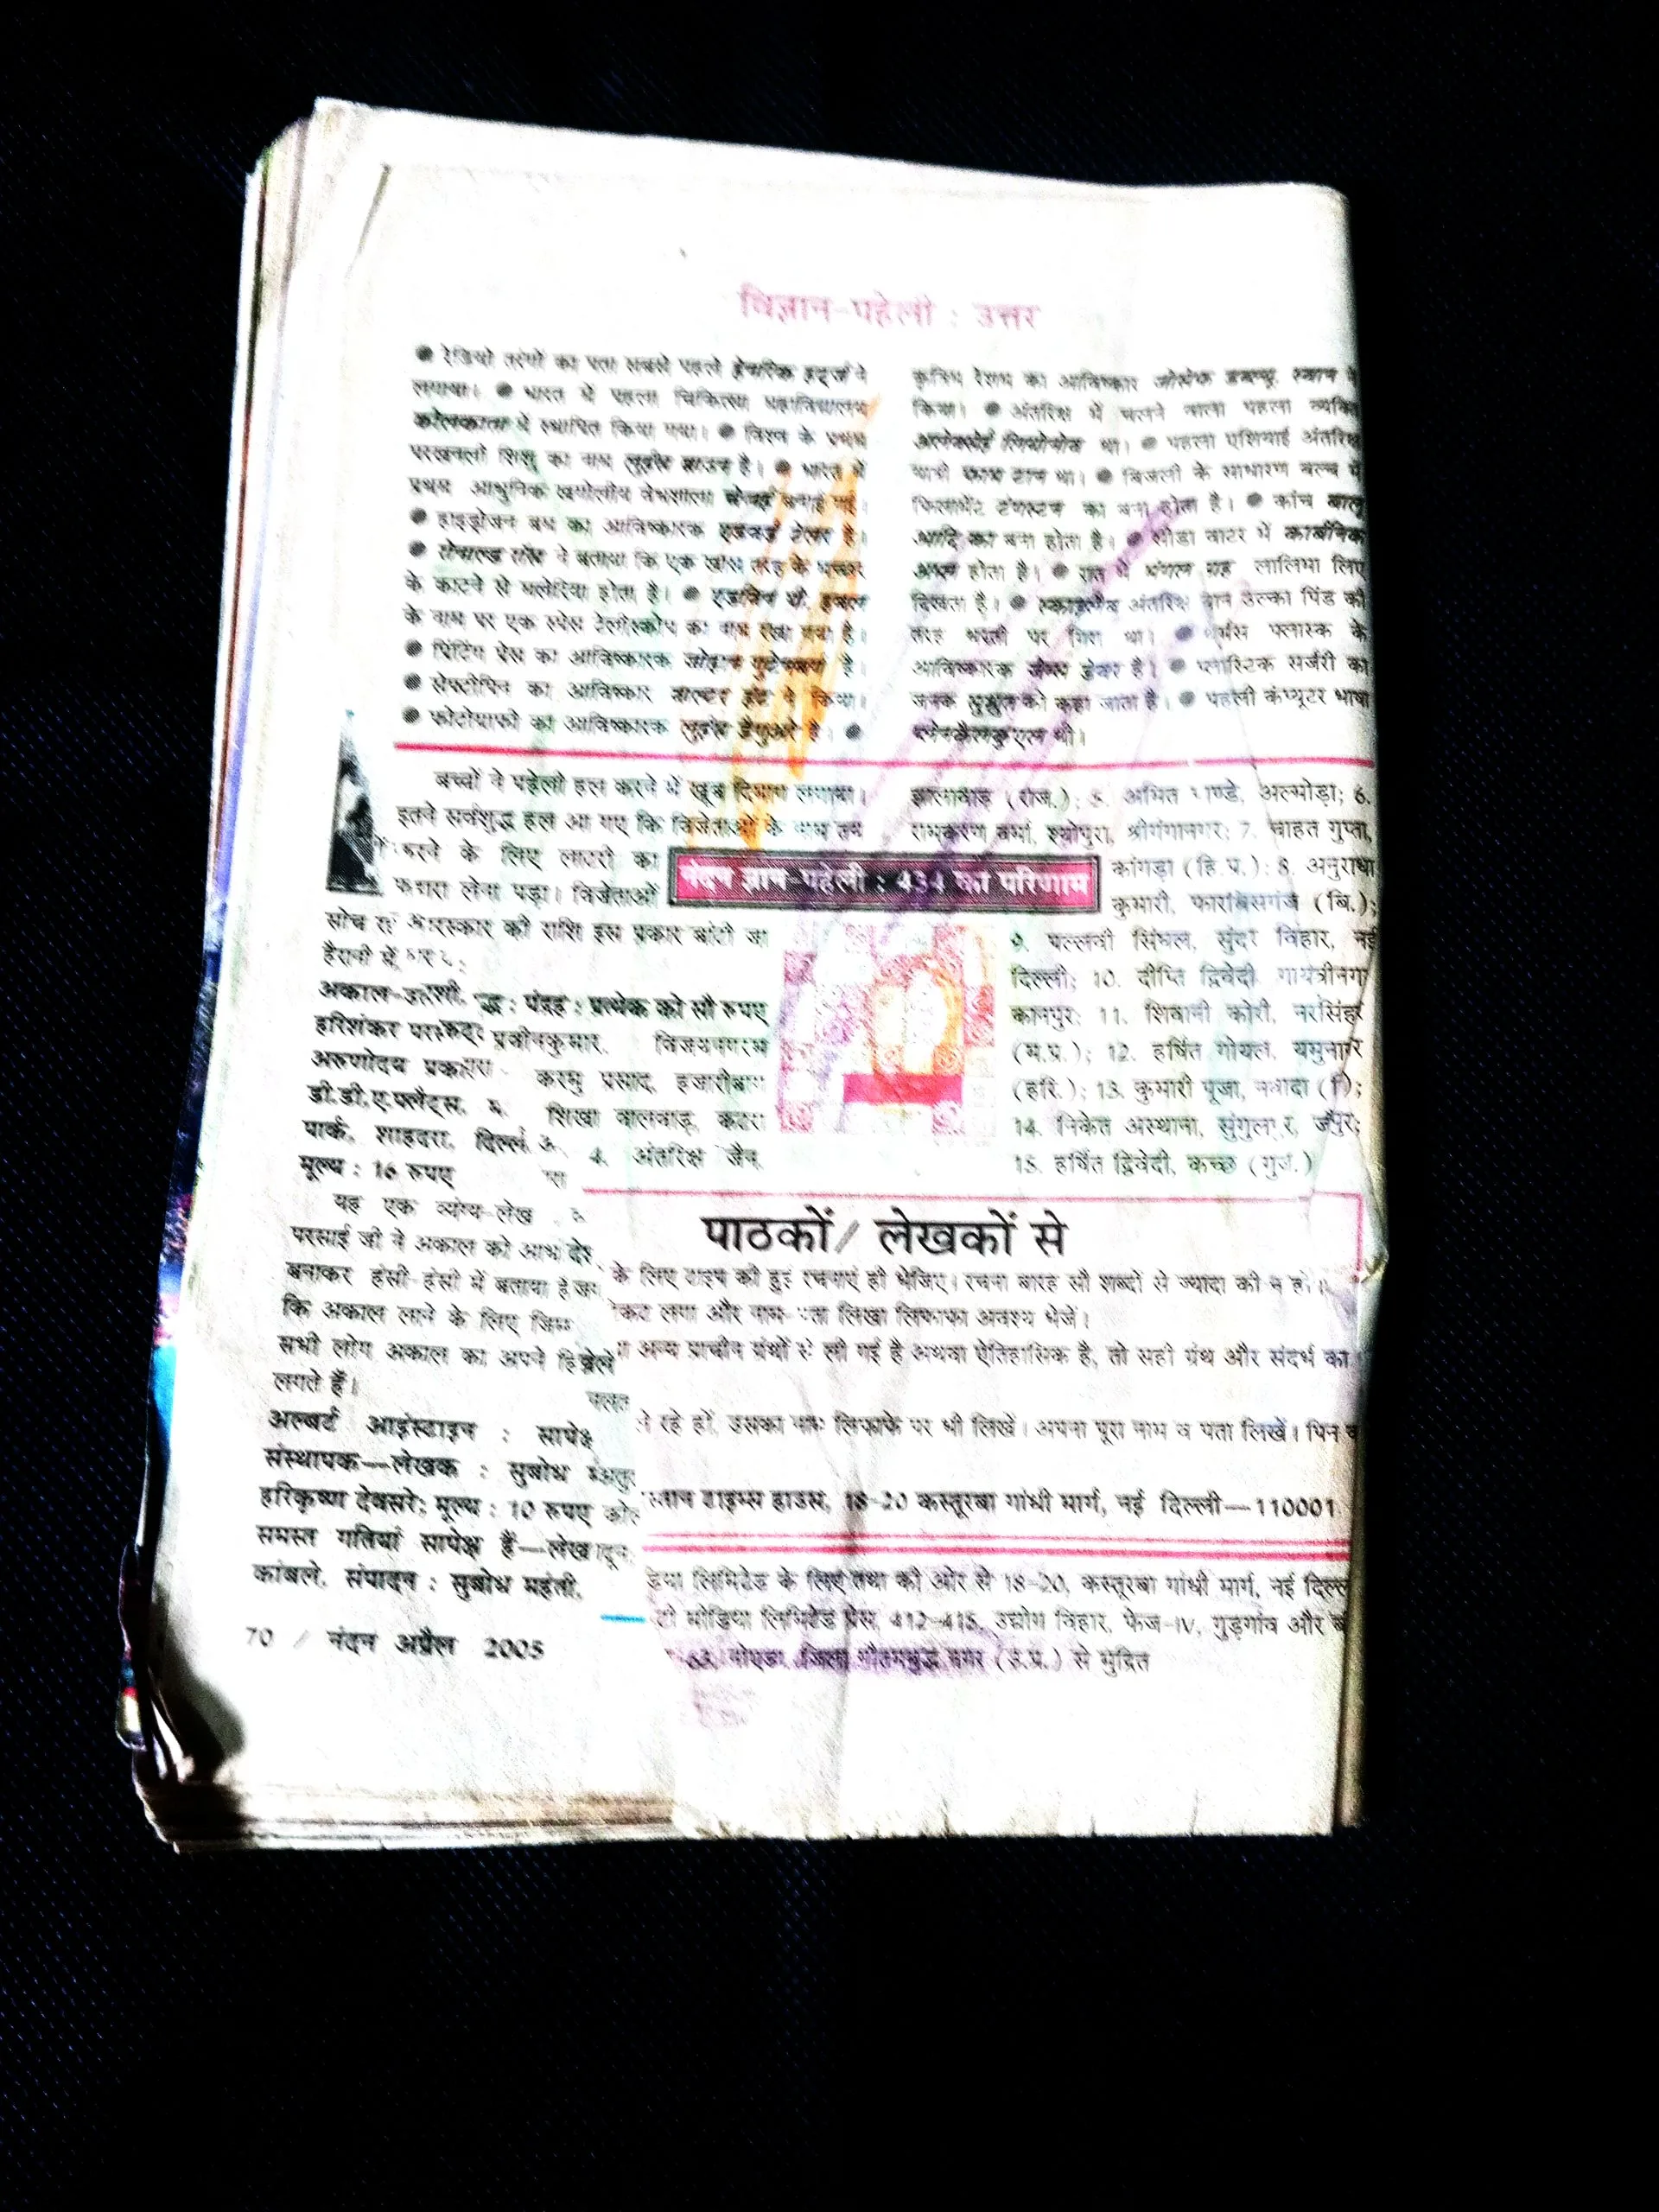 विज्ञान-पहेली : उत्तर
● रेडियो तरंगों का पता सबसे पहले हेनरिक हर्ट्ज ने
लगाया। ● भारत में पहला चिकित्सा महाविद्यालय
कोलकाता में स्थापित किया गया। ● विश्व के प्रथम
परखनली शिशु का नाम लुईस ब्राउन है। ● भारत में
प्रथम आधुनिक खगोलीय वेधशाला चेन्नई बनाई गई।
● हाइड्रोजन बम का आविष्कारक एडवर्ड टेलर है।
● रोनाल्ड रॉस ने बताया कि एक खास तरह के मच्छर
के काटने से मलेरिया होता है। ● एडविन पी. हबल
के नाम पर एक स्पेस टेलीस्कोप का नाम रखा गया है।
● प्रिंटिंग प्रेस का आविष्कारक जोहान गुटेनबर्ग है।
● सेफ्टीपिन का आविष्कार वाल्टर हंट ने किया।
● फोटोग्राफी का आविष्कारक लुईस डैगुआरे है। ●
कृत्रिम रेशम का आविष्कार जोसेफ डब्ल्यू. स्वान ने
किया। ● अंतरिक्ष में चलने वाला पहला व्यक्ति
अलेक्सेई लियोनोव था। ● पहला एशियाई अंतरिक्ष
यात्री फाम टान था। ● बिजली के साधारण बल्ब में
फिलामेंट टंगस्टन का बना होता है। ● कांच बालू
आदि का बना होता है। ● सोडा वाटर में कार्बोनिक
अम्ल होता है। ● रात में मंगल ग्रह लालिमा लिए
दिखता है। ● स्काइलैब अंतरिक्ष यान उल्का पिंड की
तरह धरती पर गिरा था। ● थर्मस फ्लास्क के
आविष्कारक जेम्स डेवर है। ● प्लास्टिक सर्जरी का
जनक सुश्रुत को कहा जाता है। ● पहली कंप्यूटर भाषा
प्लेनकैलकुएल थी।
बच्चों ने पहेली हल करने में खूब दिमाग लगाया।
इतने सर्वशुद्ध हल आ गए कि विजेताओं के नाम तय
करने के लिए लाटरी का
लेना पड़ा। विजेताओं
की राशि इस प्रकार बांटी जा
: पंद्रह : प्रत्येक को सौ रुपए
प्रवीनकुमार, विजयनगरम
करमु प्रसाद, हजारीबाग
शिखा वालवाड्, कटरा
4. अंतरिक्ष जैन,
नंदन ज्ञान-पहेली : 434 का परिणाम
झालावाड़ (राज.); 5. अमित पाण्डे, अल्मोड़ा; 6.
रामकरण वर्मा, श्योपुरा, श्रीगंगानगर; 7. चाहत गुप्ता,
कांगड़ा (हि.प्र.); 8. अनुराधा
कुमारी, फारबिसगंज (बि.);
9. पल्लवी सिंघल, सुंदर विहार, नई
दिल्ली; 10. दीप्ति द्विवेदी, गायत्रीनगर
कानपुर; 11. शिवानी कोरी, नरसिंह
(म.प्र.); 12. हर्षित गोयल, यमुना
(हरि.); 13. कुमारी पूजा, नवादा
14. निकेत अस्थाना,
15. हर्षित द्विवेदी, कच्छ (गुज.)
सोच
हैरानी में
अकाल-उत्सव
हरिशंकर
अरुणोदय
डी.डी.ए.फ्लैट्स,
पार्क, शाहदरा,
मूल्य : 16 रुपए
यह एक व्यंग्य-लेख
परसाई जी ने अकाल को
बनाकर हंसी-हंसी में बताया है
कि अकाल लाने के लिए
सभी लोग अकाल का अपने
लगते हैं।
अल्बर्ट आइंस्टाइन :
संस्थापक—लेखक : सुबोध
हरिकृष्ण देवसरे; मूल्य : 10 रुपए
समस्त गतियां सापेक्ष हैं—
कांबले, संपादन : सुबोध महंती,
70 / नंदन अप्रैल 2005
पाठकों/ लेखकों से
के लिए टाइप की हुई रचनाएं ही भेजिए। रचना बारह सौ शब्दों से ज्यादा की न हो।
लगा और नाम-पता लिखा लिफाफा अवश्य भेजें।
अन्य प्राचीन ग्रंथों से ली गई है अथवा ऐतिहासिक है, तो सही ग्रंथ और संदर्भ का
रहे हों, उसका नाम लिफाफे पर भी लिखें। अपना पूरा नाम व पता लिखें। पिन
टाइम्स हाउस, 18-20 कस्तूरबा गांधी मार्ग, नई दिल्ली—110001
लिमिटेड के लिए तथा की ओर से 18-20, कस्तूरबा गांधी मार्ग, नई
मीडिया लिमिटेड प्रेस, 412-415, उद्योग विहार, फेज-IV, गुड़गांव और
63, नोएडा, जिला गौतमबुद्ध नगर (उ.प्र.) से मुद्रित